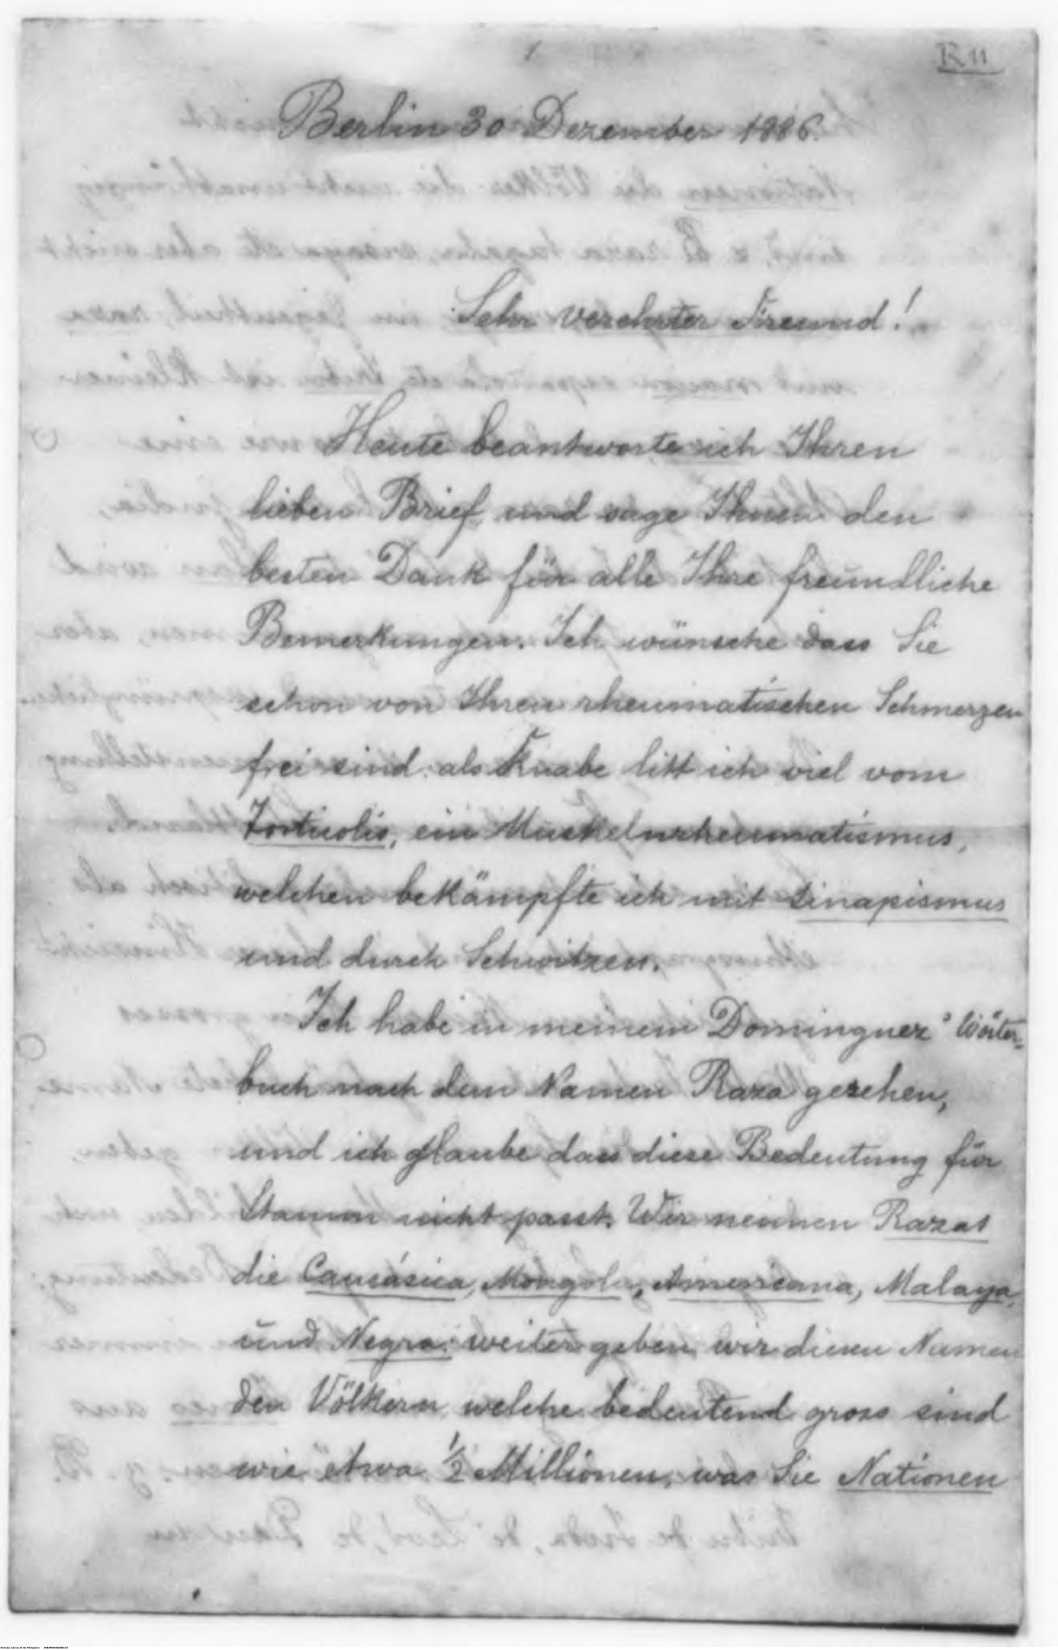 R 11
1
Berlin 30 Dezember 1886.
Sehr verehrter Freund!
Heute beantworte ich Ihren
lieben Brief und sage Ihnen den
besten Dank für alle Ihre freundliche
Bemerkungen. Ich wünsche dass Sie
schon von Ihren rheumatischen Schmerzen
frei sind: als Knabe litt ich viel vom
Torticolis, ein Muskelnrheumatismus,
welchen bekämpfte ich mit sinapismus
und durch Schwitzen.
Ich habe in meinem Dominguez' Wörter=
buch nach dem Namen Raza gesehen,
und ich glaube dass diese Bedeutung für
Stamm nicht passt. Wir nennen Razas
die Caucásica, Mongola, Americana, Malaya,
und Negra: weiter geben wir diesen Namen
den Völkern welche bedeutend gross sind
wie etwa ½ Millionen, was Sie Nationen